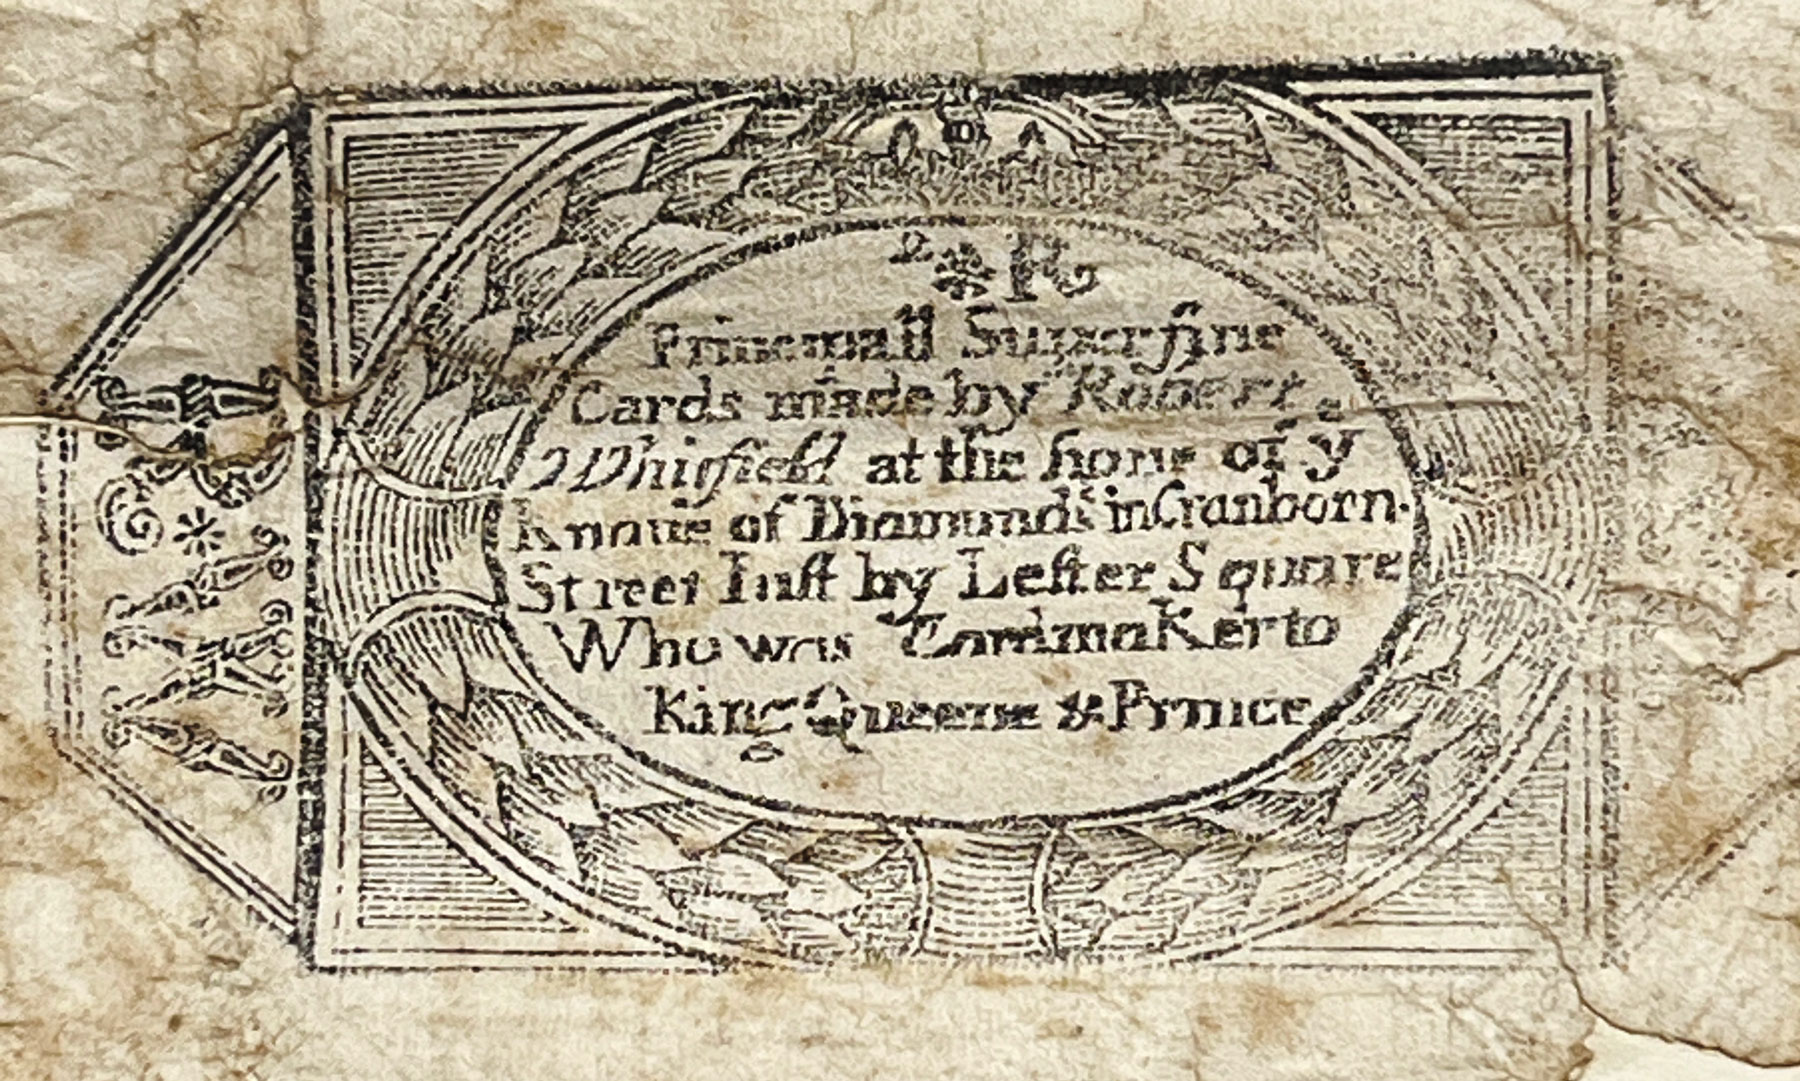 R
Principall Superfine
Cards made by Robert
Whitfield at the signe of yͤ
Knaue of Diamonds in Cranborn-
Street Iust by Lester Square
Who was CardmaKer to
King Queene & Prince